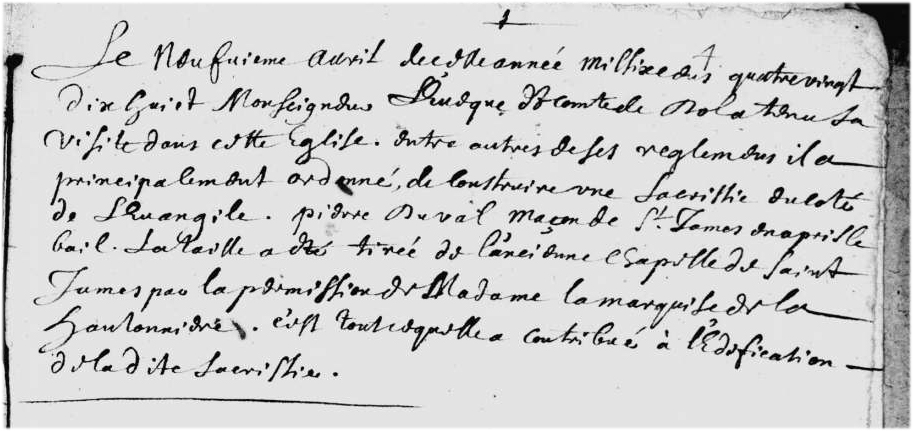 Le neufuieme auril de cette année mil sixcens quatre vingt
dix huict Monseigneur L'Euesque & Comte de Dol a tenu sa
visite dans cette Eglise. entre autres de ses reglemens il a
principalement ordonné, de Construire vne Sacristie du coté
de L'Euangile. pierre Duval maçon de St. James en a pris le
bail. La taille a été tirée de l'anciénne Chapelle de Saint
James par la permission de Madame la marquise de la
Haulonniere. c'est tout ce quelle a contribué à l'Edification
de la dite Sacristie.